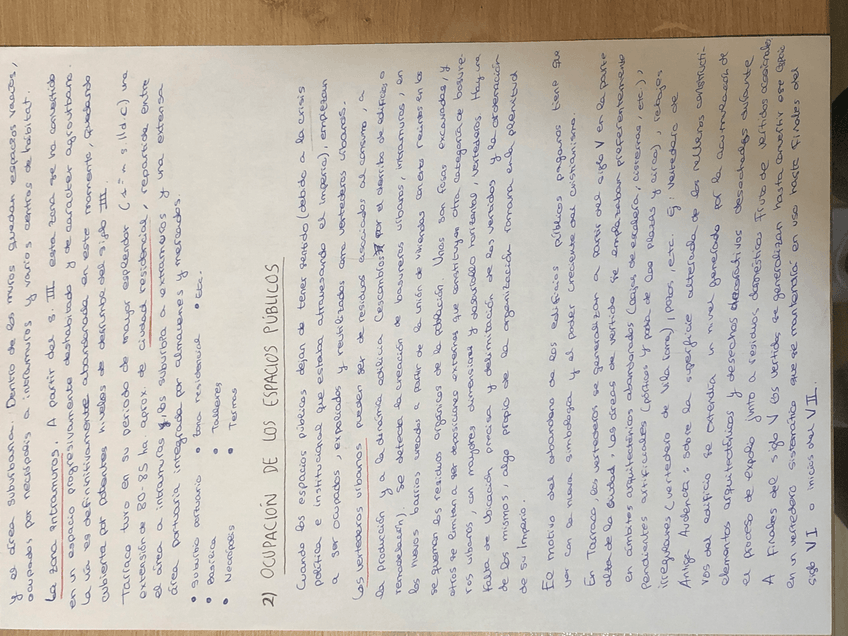 y el área suburbana. Dentro de los muros quedan espacios vacíos,
ocupados por necrópolis a intramuros y varios centros de hábitat.
La zona intramuros. A partir del s. III esta zona se ha convertido
en un espacio progresivamente deshabitado y de carácter agrourbano.
La vía es definitivamente abandonada en este momento, quedando
cubierta por potentes niveles de derrumbe del siglo III.
Tarraco tuvo en su periodo de mayor esplendor s. II d.C) una
extensión de 80-85 ha aprox. de ciudad residencial, repartida entre
el área a intramuros y los suburbia a extramuros y una extensa
área portuaria integrada por almacenes y mercados.
• Suburbio portuario • Zona residencial • Etc.
• Basílica • Talleres
• Necrópolis • Termas
2) OCUPACIÓN DE LOS ESPACIOS PÚBLICOS
Cuando los espacios públicos dejan de tener sentido (debido a la crisis
política e institucional que estaba atravesando el Imperio), empiezan
a ser ocupados, expoliados y reutilizados como vertederos urbanos.
Los vertederos urbanos pueden ser de residuos asociados al consumo, a
la producción y a la dinámica edilicia (escombros por el derribo de edificios o
remodelación). Se detecta la creación de basureros urbanos, intramuros, en
los nuevos barrios creados a partir de la unión de viviendas
se queman los residuos orgánicos de la población. Unos son fosas excavadas, y
otros se limitan a ser deposiciones externas que constituyen otra categoría de basure-
ros urbanos, con mayores dimensiones y desarrollo horizontal, vertederos. Hay una
falta de ubicación precisa y delimitación de los vertidos y la ordenación
de los mismos, algo propio de la organización romana en la plenitud
de su Imperio.
El motivo del abandono de los edificios públicos paganos tiene que
ver con la nueva simbología y el poder creciente del cristianismo.
En Tarraco, los vertederos se generalizan a partir del siglo V en la parte
alta de la ciudad. Las áreas de vertido se emplazaban preferentemente
en ámbitos arquitectónicos abandonados (cajas de escalera, cisternas, etc.),
pendientes artificiales (pórticos y podia de las plazas y circo), rebajes
irregulares (vertedero de Vila Roma), pozos, etc. Ej: vertedero de
Antiga Audiencia: sobre la superficie alterada de los rellenos constructi-
vos del edificio se extendía un nivel generado por la acumulación de
elementos arquitectónicos y desechos decorativos desechados durante
el proceso de expolio junto a residuos domésticos fruto de vertidos ocasionales.
A finales del siglo V los vertidos se generalizan hasta convertir ese espacio
en un vertedero sistemático que se mantendrá en uso hasta finales del
siglo VI o inicios del VII.